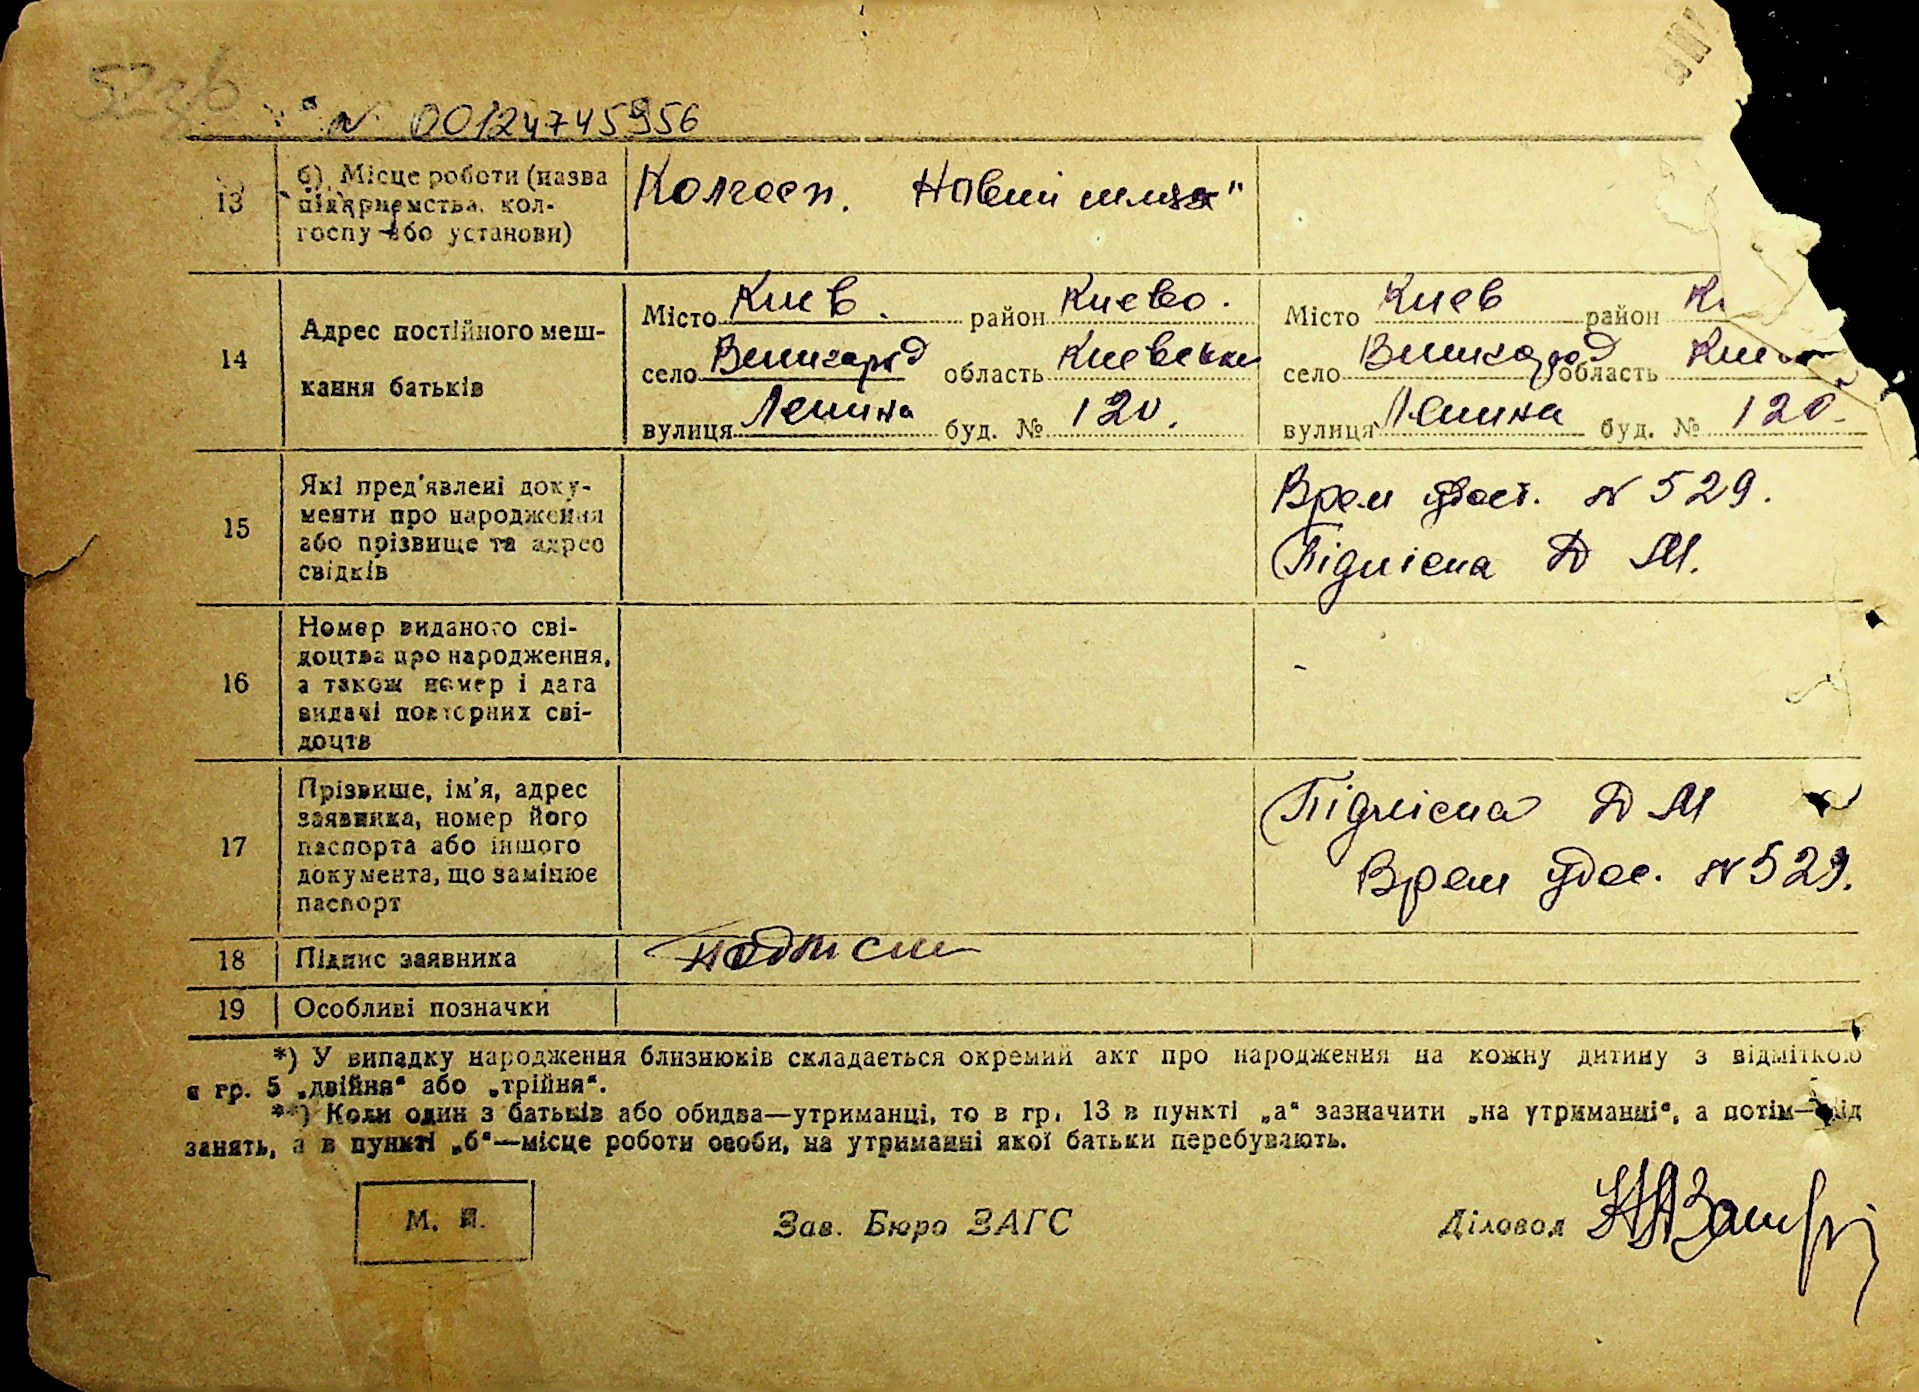 N 00124745956
13
б) Місце роботи (назва
підприємства, кол-
госпу або установи)
Колгосп. Новий шлях"
14
Адрес постійного меш-
кання батьків
Місто Киев. район Киево.
село Вишгород область Киевская
вулиця Ленина буд. № 120.
Місто Киев район
село Вишгород область Киев
вулиця Ленина буд. № 120.
15
Які пред'явлені доку-
менти про народження
або прізвище та адрес
свідків
Врем удост. N 529.
Підлісна Д М.
16
Номер виданого сві-
доцтва про народження,
а також номер і дата
видачі повторних сві-
доцтв
17
Прізвище, ім'я, адрес
заявника, номер його
паспорта або іншого
документа, що замінює
паспорт
Підлісна Д М
Врем удос. N 529.
18
Підпис заявника
подписи
19
Особливі позначки
*) У випадку народження близнюків складається окремий акт про народження на кожну дитину з відміткою
в гр. 5 „двійня“ або „трійня“.
**) Коли один з батьків або обидва—утриманці, то в гр. 13 в пункті „а“ зазначити „на утриманні“, а потім—рід
занять, а в пункті „б“—місце роботи особи, на утриманні якої батьки перебувають.
М. П.
Зав. Бюро ЗАГС
Діловод